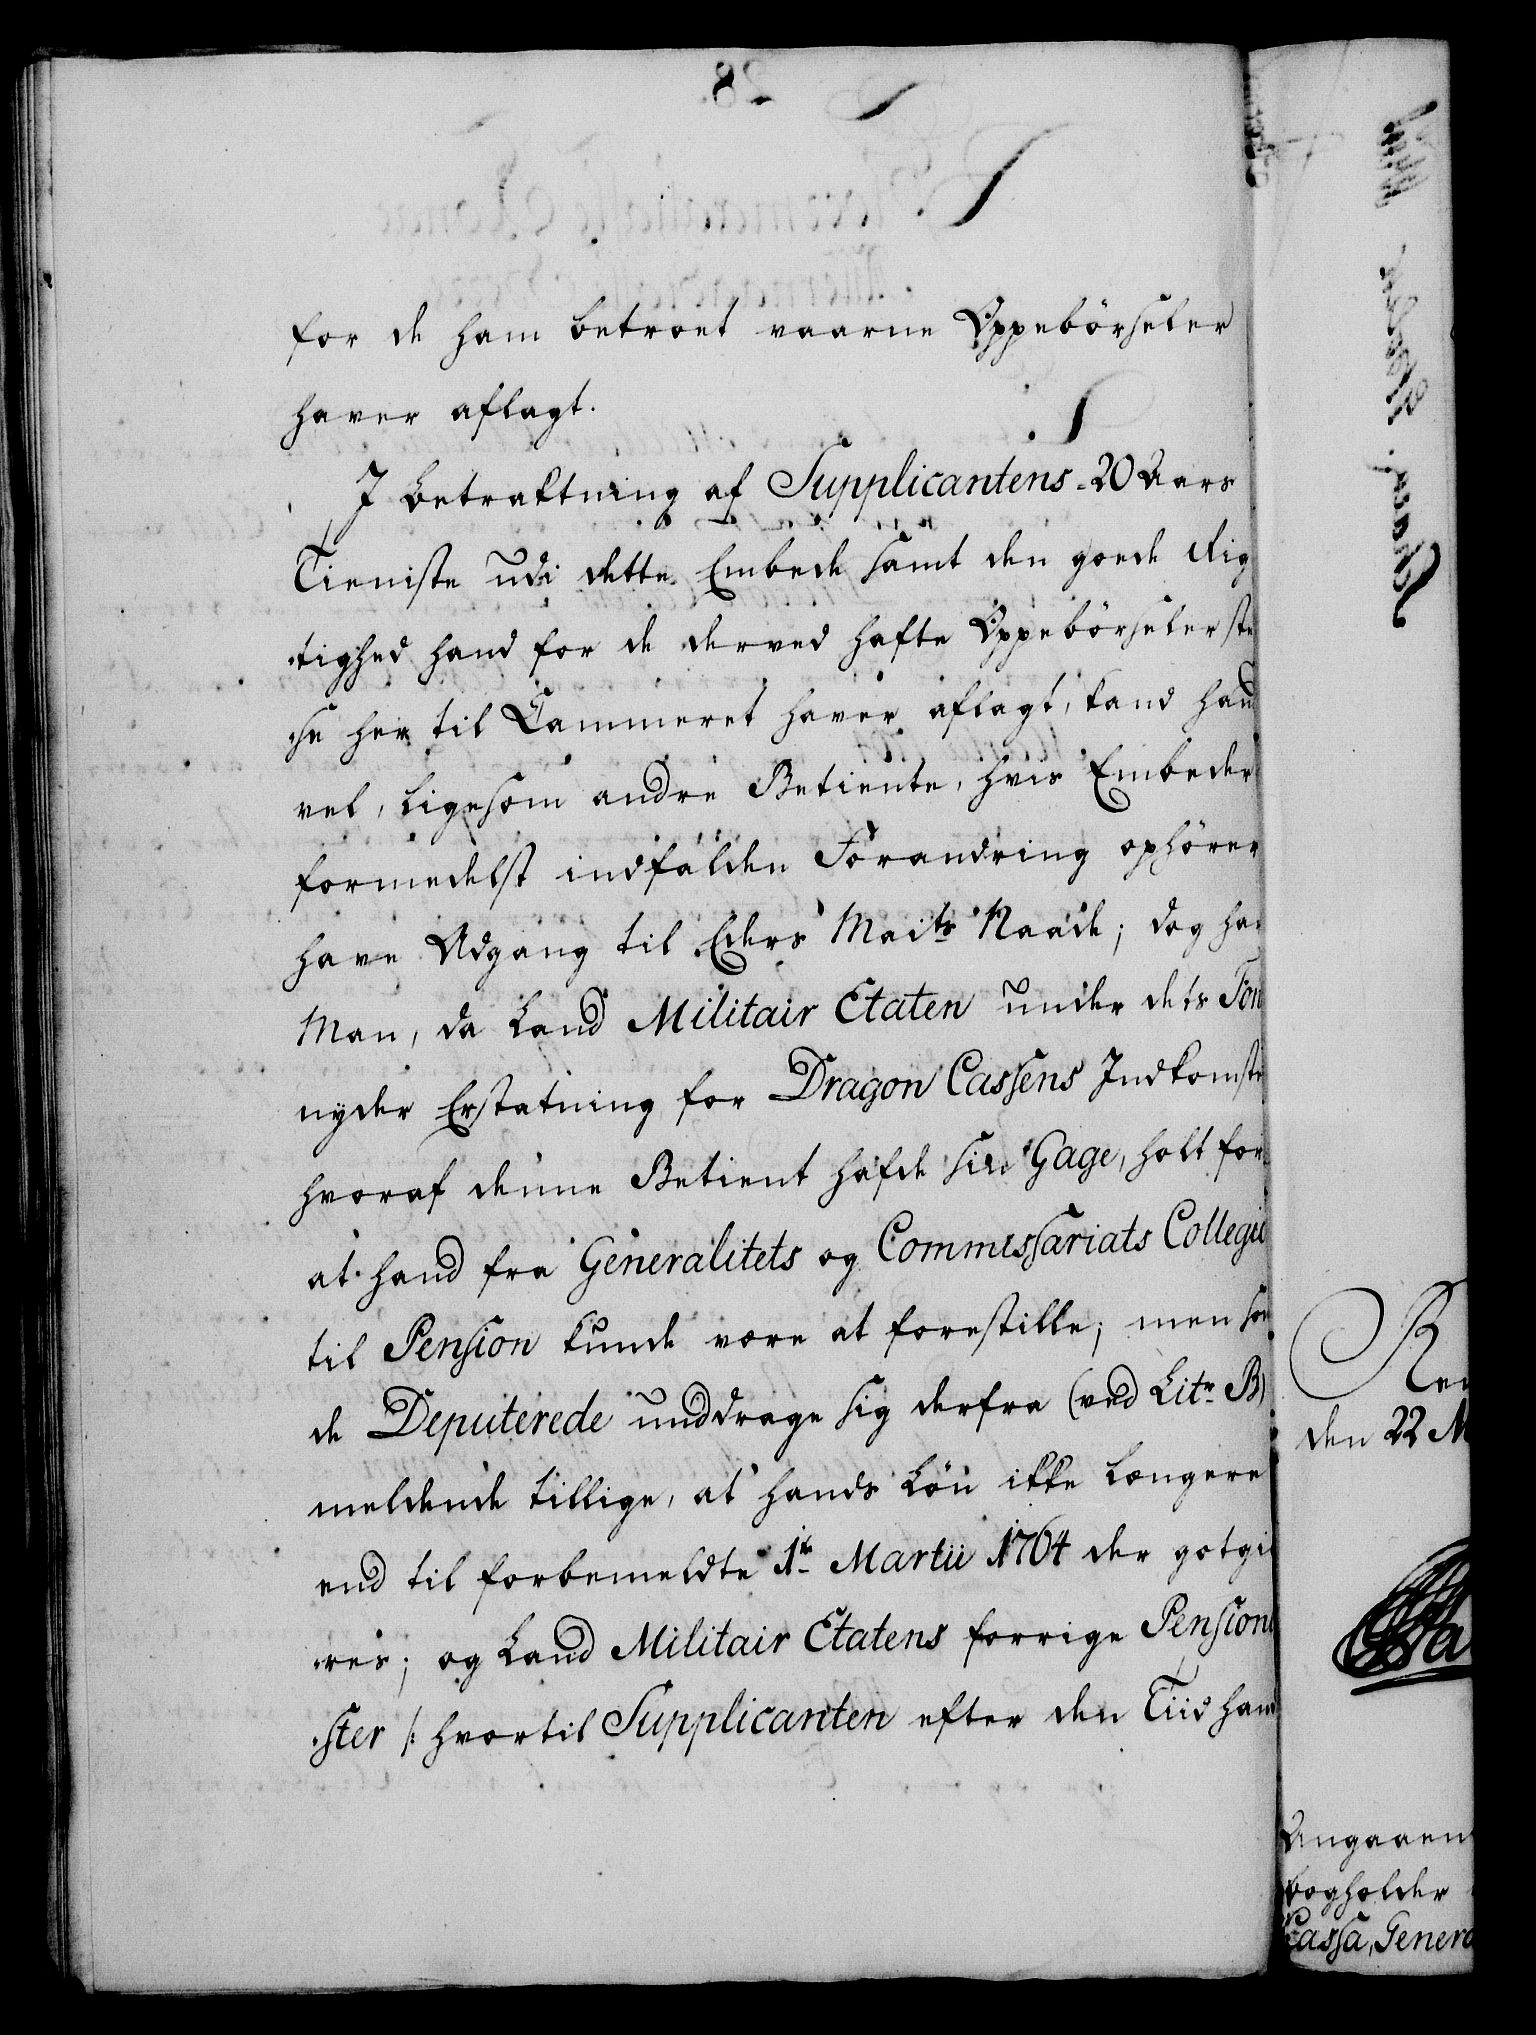 for de ham betroet vaarne Oppebörseler
haver aflagt.
I betraktning af Supplicantens 20 Aars
Tieniste udi dette Embede samt den goede Rig
tighed hand for de derved hafte Oppebörseler ste
se her til Cammeret haver aflagt, kand hand
vel, ligesom andre Betiente, hvis Embeder
formedelst indfalden Forandring ophörer
have Adgang til Eders Maits Naade; dog har
Man, da Land Militair Etaten under dets Fon
nyder Erstatning for Dragon Cassens Indkomste
hvoraf denne Betient hafde sin Gage, holt for
at hand fra Generalitets og Commissariats Collegie
til Pension kunde være at forestille; men som
de Deputerede unddrage sig derfra (ved Litr B)
meldende tillige, at hands Lön ikke længere
end til forbemeldte 1te Martii 1764 der gotgiö
res; og Land Militair Etatens forrige Pensioni
ster /: hvortil Supplicanten efter den Tiid hand
den 22 M
Angaaen
bogholder
Cassa, Genera